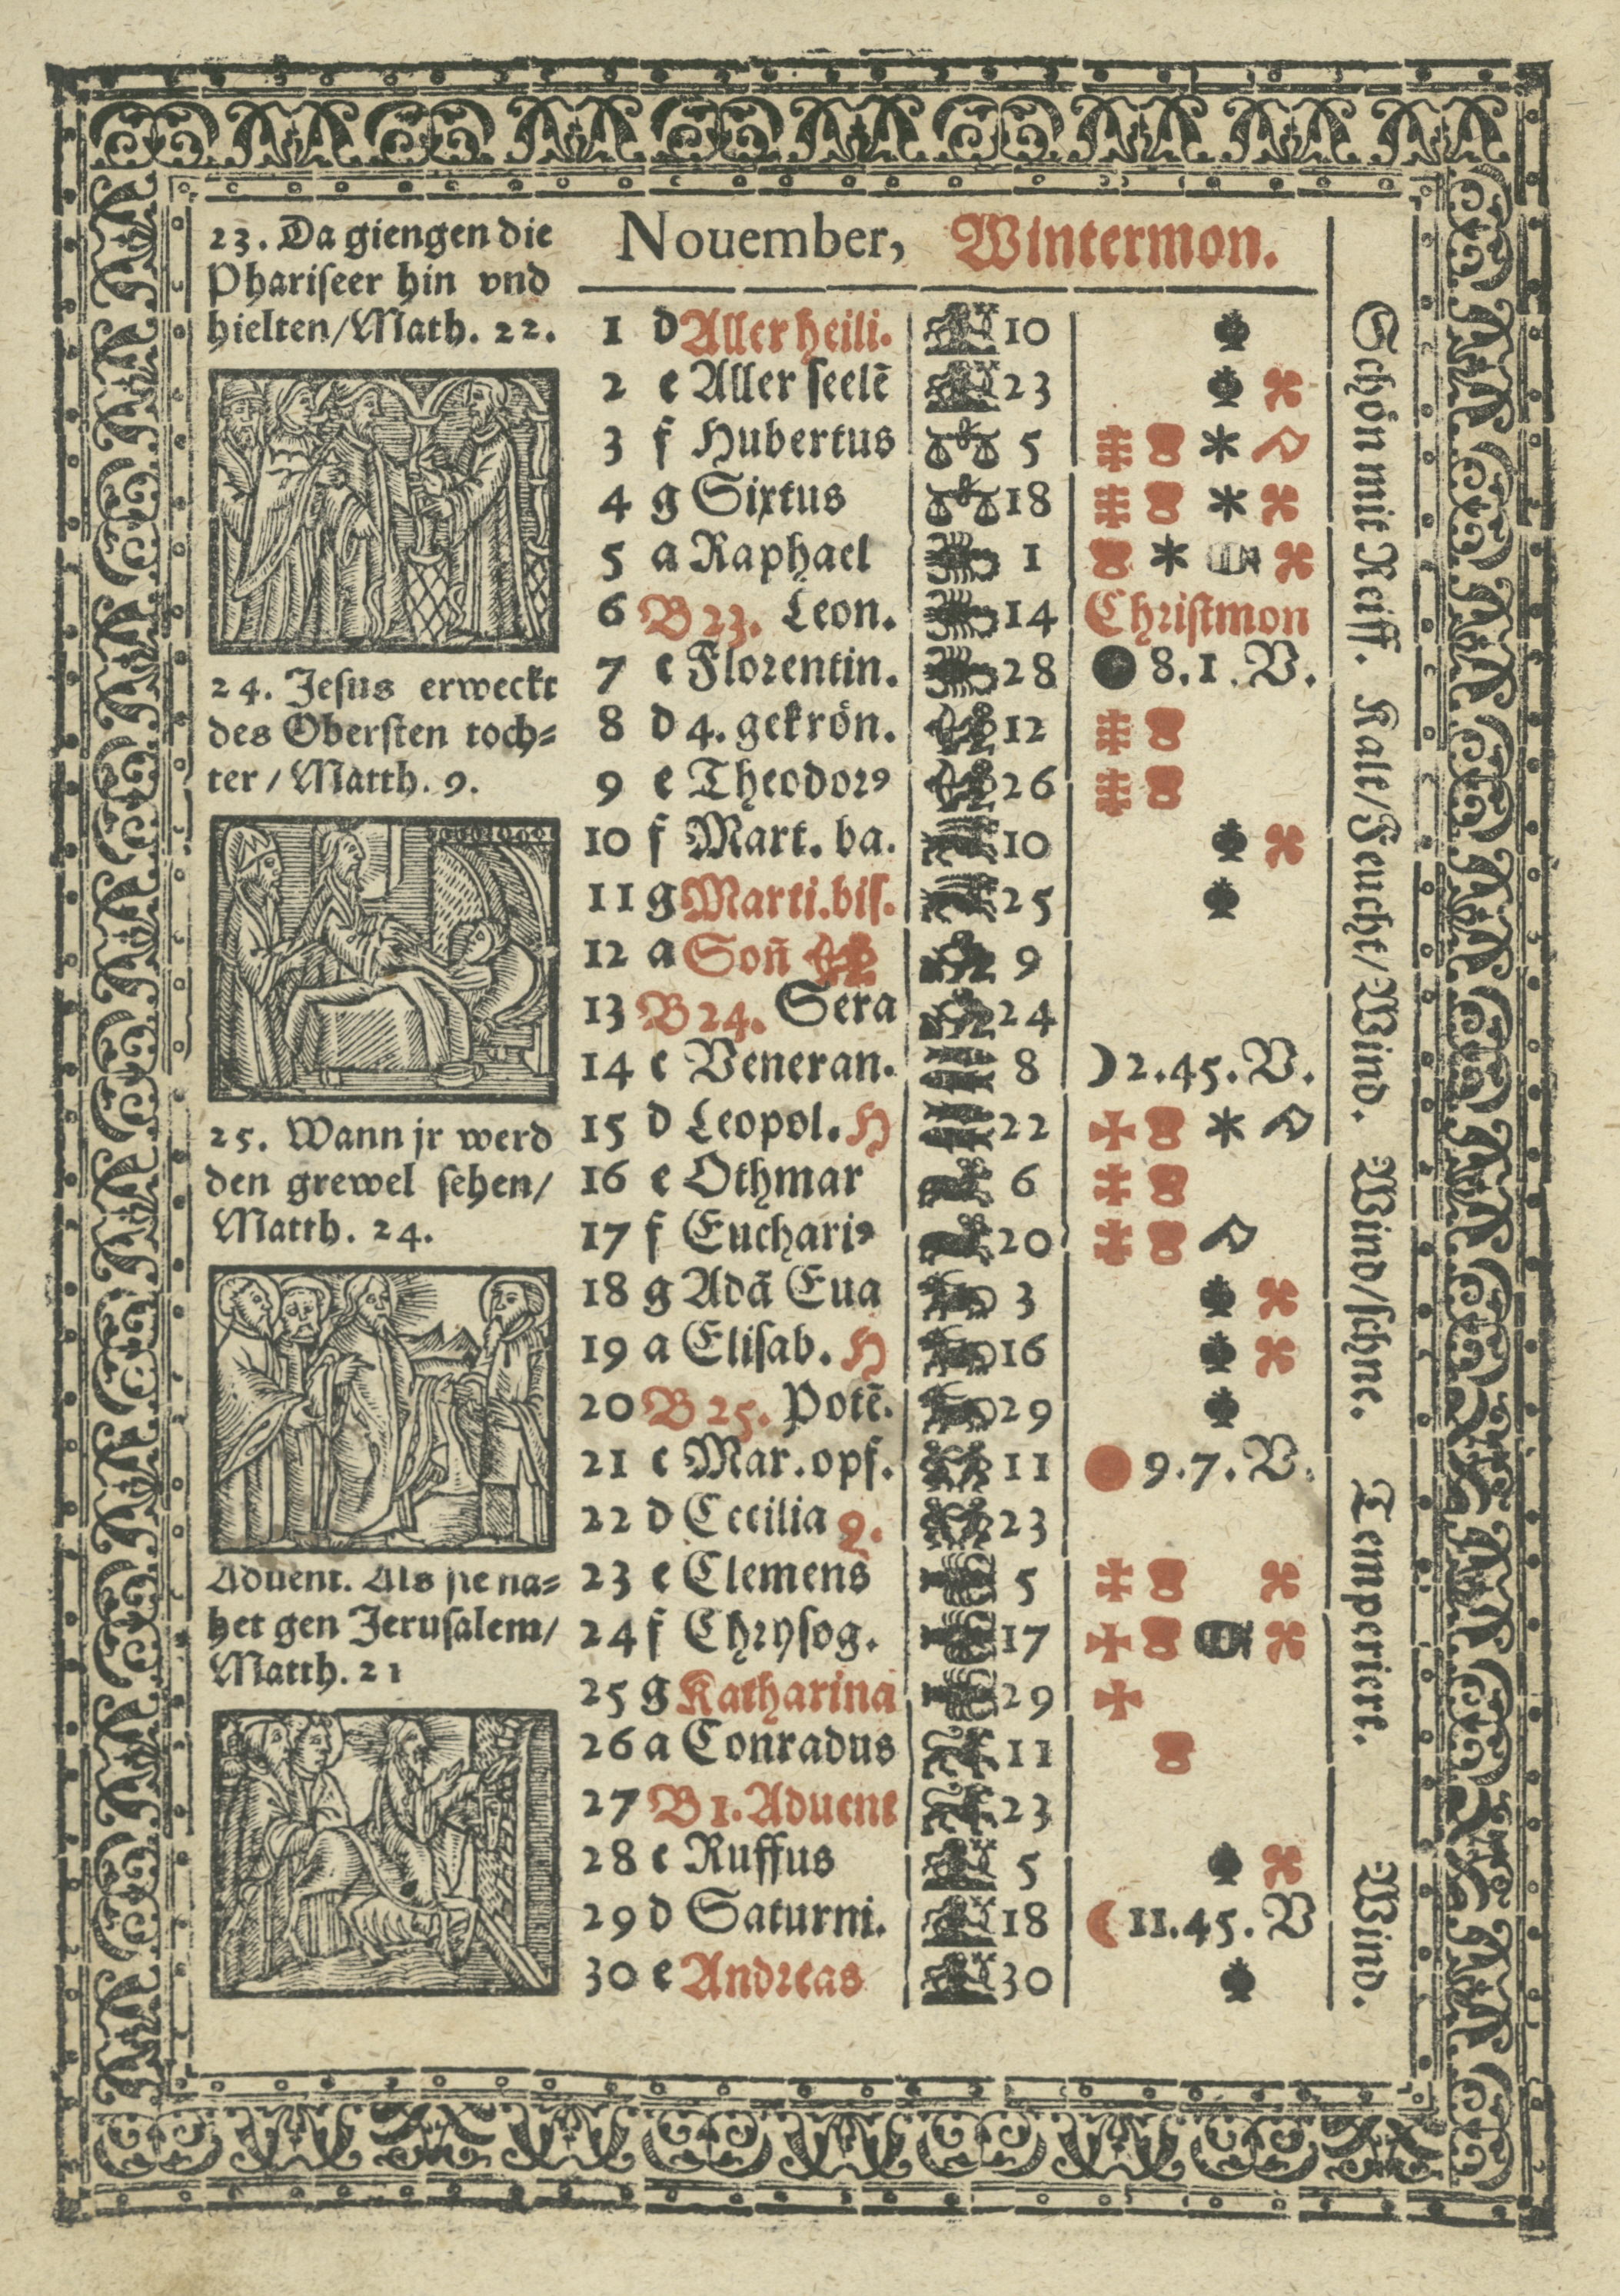 Nouember, Wintermon.
23. Da giengen die
Phariseer hin vnd
hielten/Math. 22.
24. Jesus erweckt
des Obersten toch⸗
ter / Matth. 9.
25. Wann jr werd
den grewel sehen/
Matth. 24.
Aduent. Als sie na⸗
het gen Jerusalem/
Matth. 21
1 d Aller heili. 10
2 e Aller seelē 23
3 f Hubertus 5
4 g Sixtus 18
5 a Raphael 1
6 B 23. Leon. 14 Christmon
7 c Florentin. 28 8.1.V.
8 d 4. gekrön. 12
9 e Theodorꝰ 26
10 f Mart. ba. 10
11 g Marti.bis. 25
12 a Son̄ 9
13 B 24. Sera 24
14 c Veneran. 8 ☽ 2.45.V.
15 d Leopol. H 22
16 e Othmar 6
17 f Euchariꝰ 20
18 g Adā Eua 3
19 a Elisab. H 16
20 B 25. Potē. 29
21 c Mar.opf. 11 9.7.V.
22 d Cecilia Q. 23
23 e Clemens 5
24 f Chrysog. 17
25 g Katharina 29
26 a Conradus 11
27 B 1. Aduent 23
28 c Ruffus 5
29 d Saturni. 18 ☾ 11.45.V
30 e Andreas 30
Schön mit Reiff. Kalt/Feucht/Wind. Wind/schne. Temperiert. Wind.